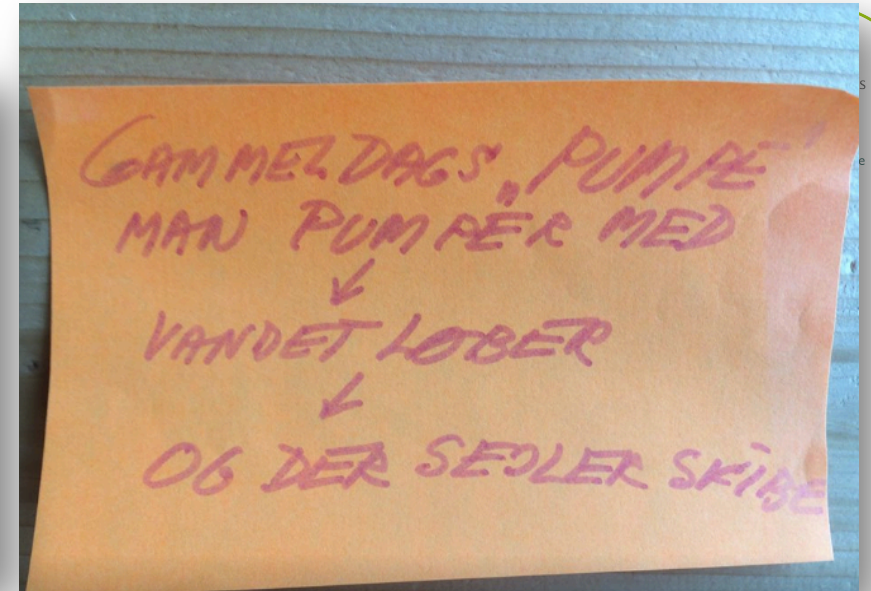 GAMMELDAGS „PUMPE"
MAN PUMPER MED
↓
VANDET LØBER
↓
OG DER SEJLER SKIBE